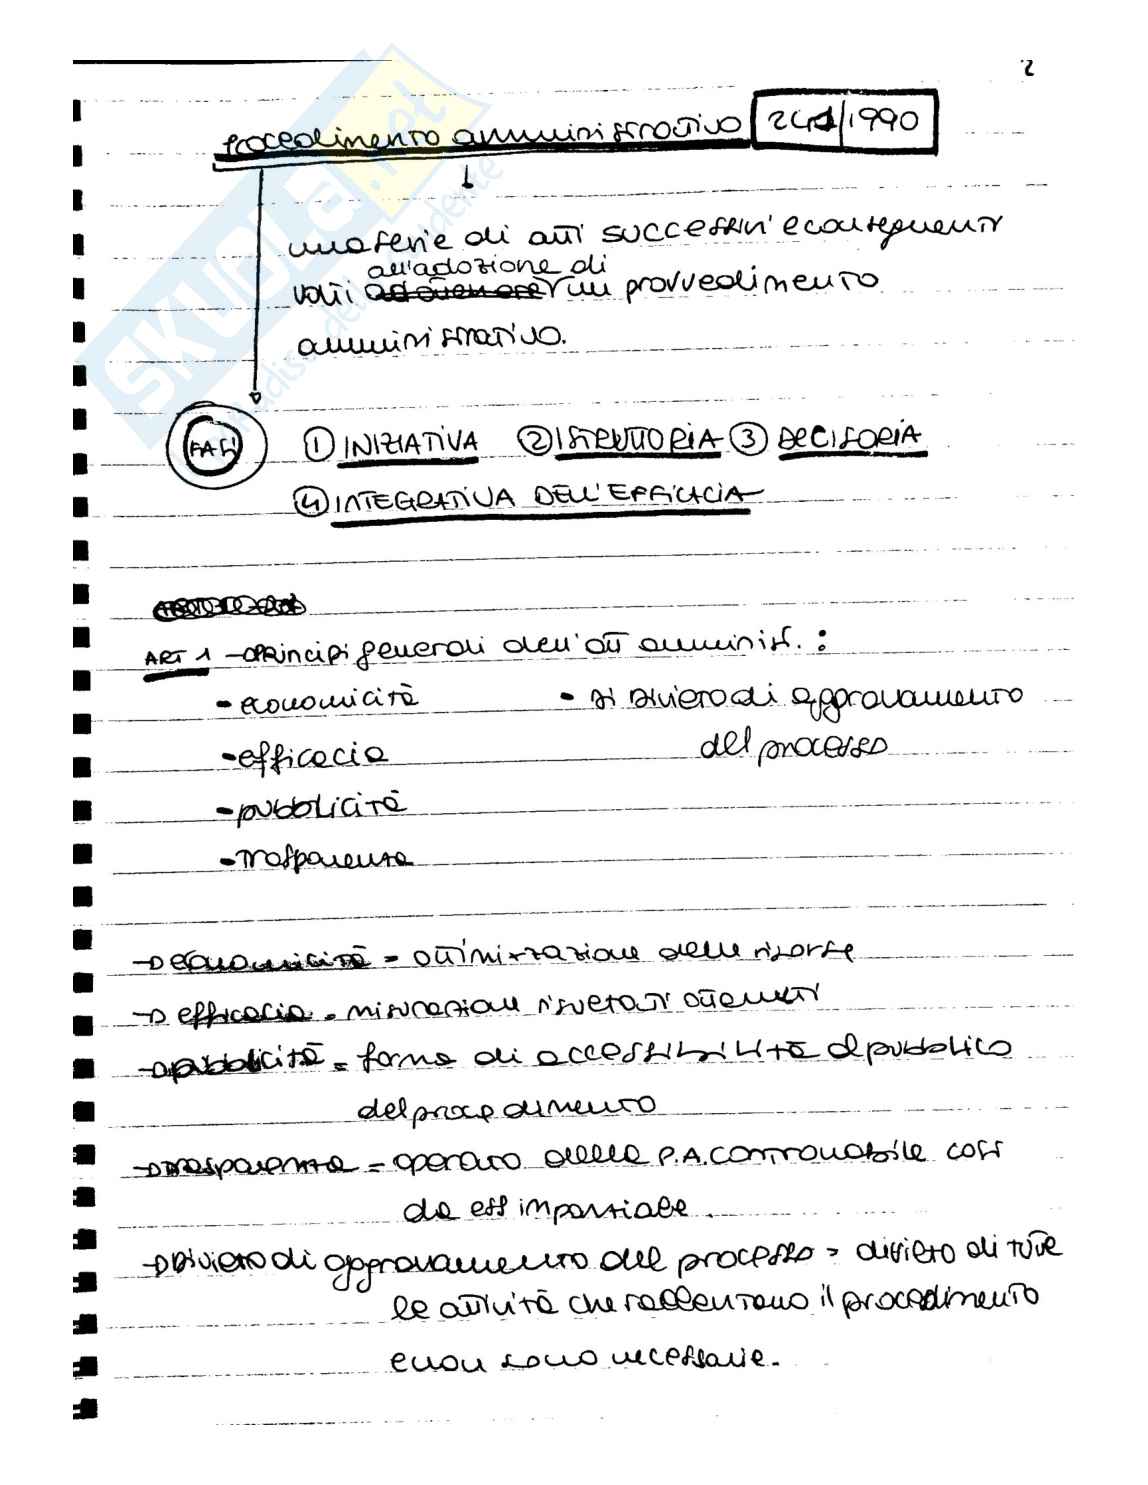 2
Procedimento amministrativo 241/1990
una serie di atti successivi e conseguenti
all'adozione di
volti ad un provvedimento
amministrativo.
FASI ① INIZIATIVA ② ISTRUTTORIA ③ DECISORIA
④ INTEGRATIVA DELL'EFFICACIA
ART 1 → principi generali dell'att amminist. :
- economicità - di divieto di aggravamento
del processo
- efficacia
- pubblicità
- trasparenza
→ economicità = ottimizzazione delle risorse
→ efficacia = misurazione risultati ottenuti
→ pubblicità = forma di accessibilità al pubblico
del procedimento
→ trasparenza = operato della P.A. controllabile così
da ess imparziale.
→ Divieto di aggravamento del processo = divieto di tutte
le attività che rallentano il procedimento
e non sono necessarie.
SKUOLA.net